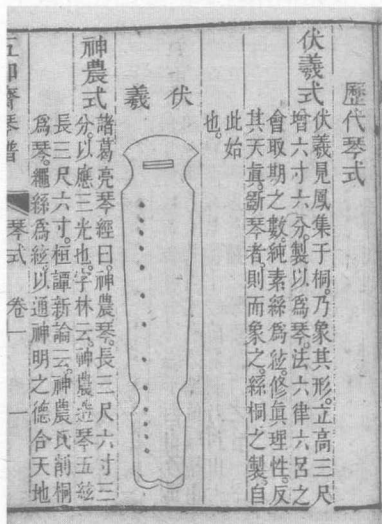 歷代琴式
伏羲式
伏羲見鳳集于桐。乃象其形。立高三尺
增六寸六分。製以爲琴。法六律六呂之
會取期之數。純素絲爲絃。修眞理性。反
其天眞。斵琴者。則而象之。絲桐之製。自
此始
也。
伏羲
神農式
諸葛亮琴經曰。神農琴。長三尺六寸三
分。以應三光也。字林云。神農造琴五絃
長三尺六寸。桓譚新論云。神農氏削桐
爲琴。繩絲爲絃。以通神明之德合天地
五知齋琴譜 琴式 卷一 一